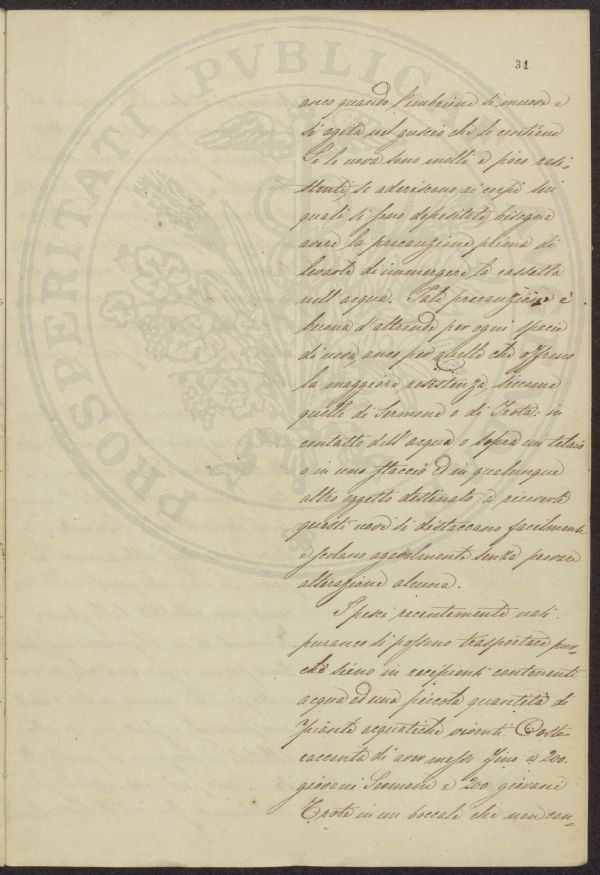 31
anco quando l'embrione si muove e
si agita nel guscio che lo contiene
Se le uova sono molli e poco resi-
stenti, se aderiscono ai corpi sui
quali si sono depositate, bisogna
avere la precauzione prima di
levarle di immergere la cassetta
nell'acqua. Tale precauzione è
buona d'attende per ogni specie
di uova anco per quelle che offrono
la maggiore resistenza siccome
quelle di Sermone e di Trota: in
contatto dell'acqua o sopra un telaio
o in uno staccio ed in qualunque
altro oggetto destinato a riceverle
queste uova si distaccano facilmente
e scolano agevolmente senza provare
alterazione alcuna.
I pesci recentemente nati
puranco si possono trasportare pur-
chè sieno in recipienti contenenti
acqua ed una piccola quantità di
piante acquatiche viventi. Coste
racconta di aver messo fino a 200
giovani Sermoni e 200 giovani
Trote in un boccale che non con-
PROSPERITATI PVBLICAE